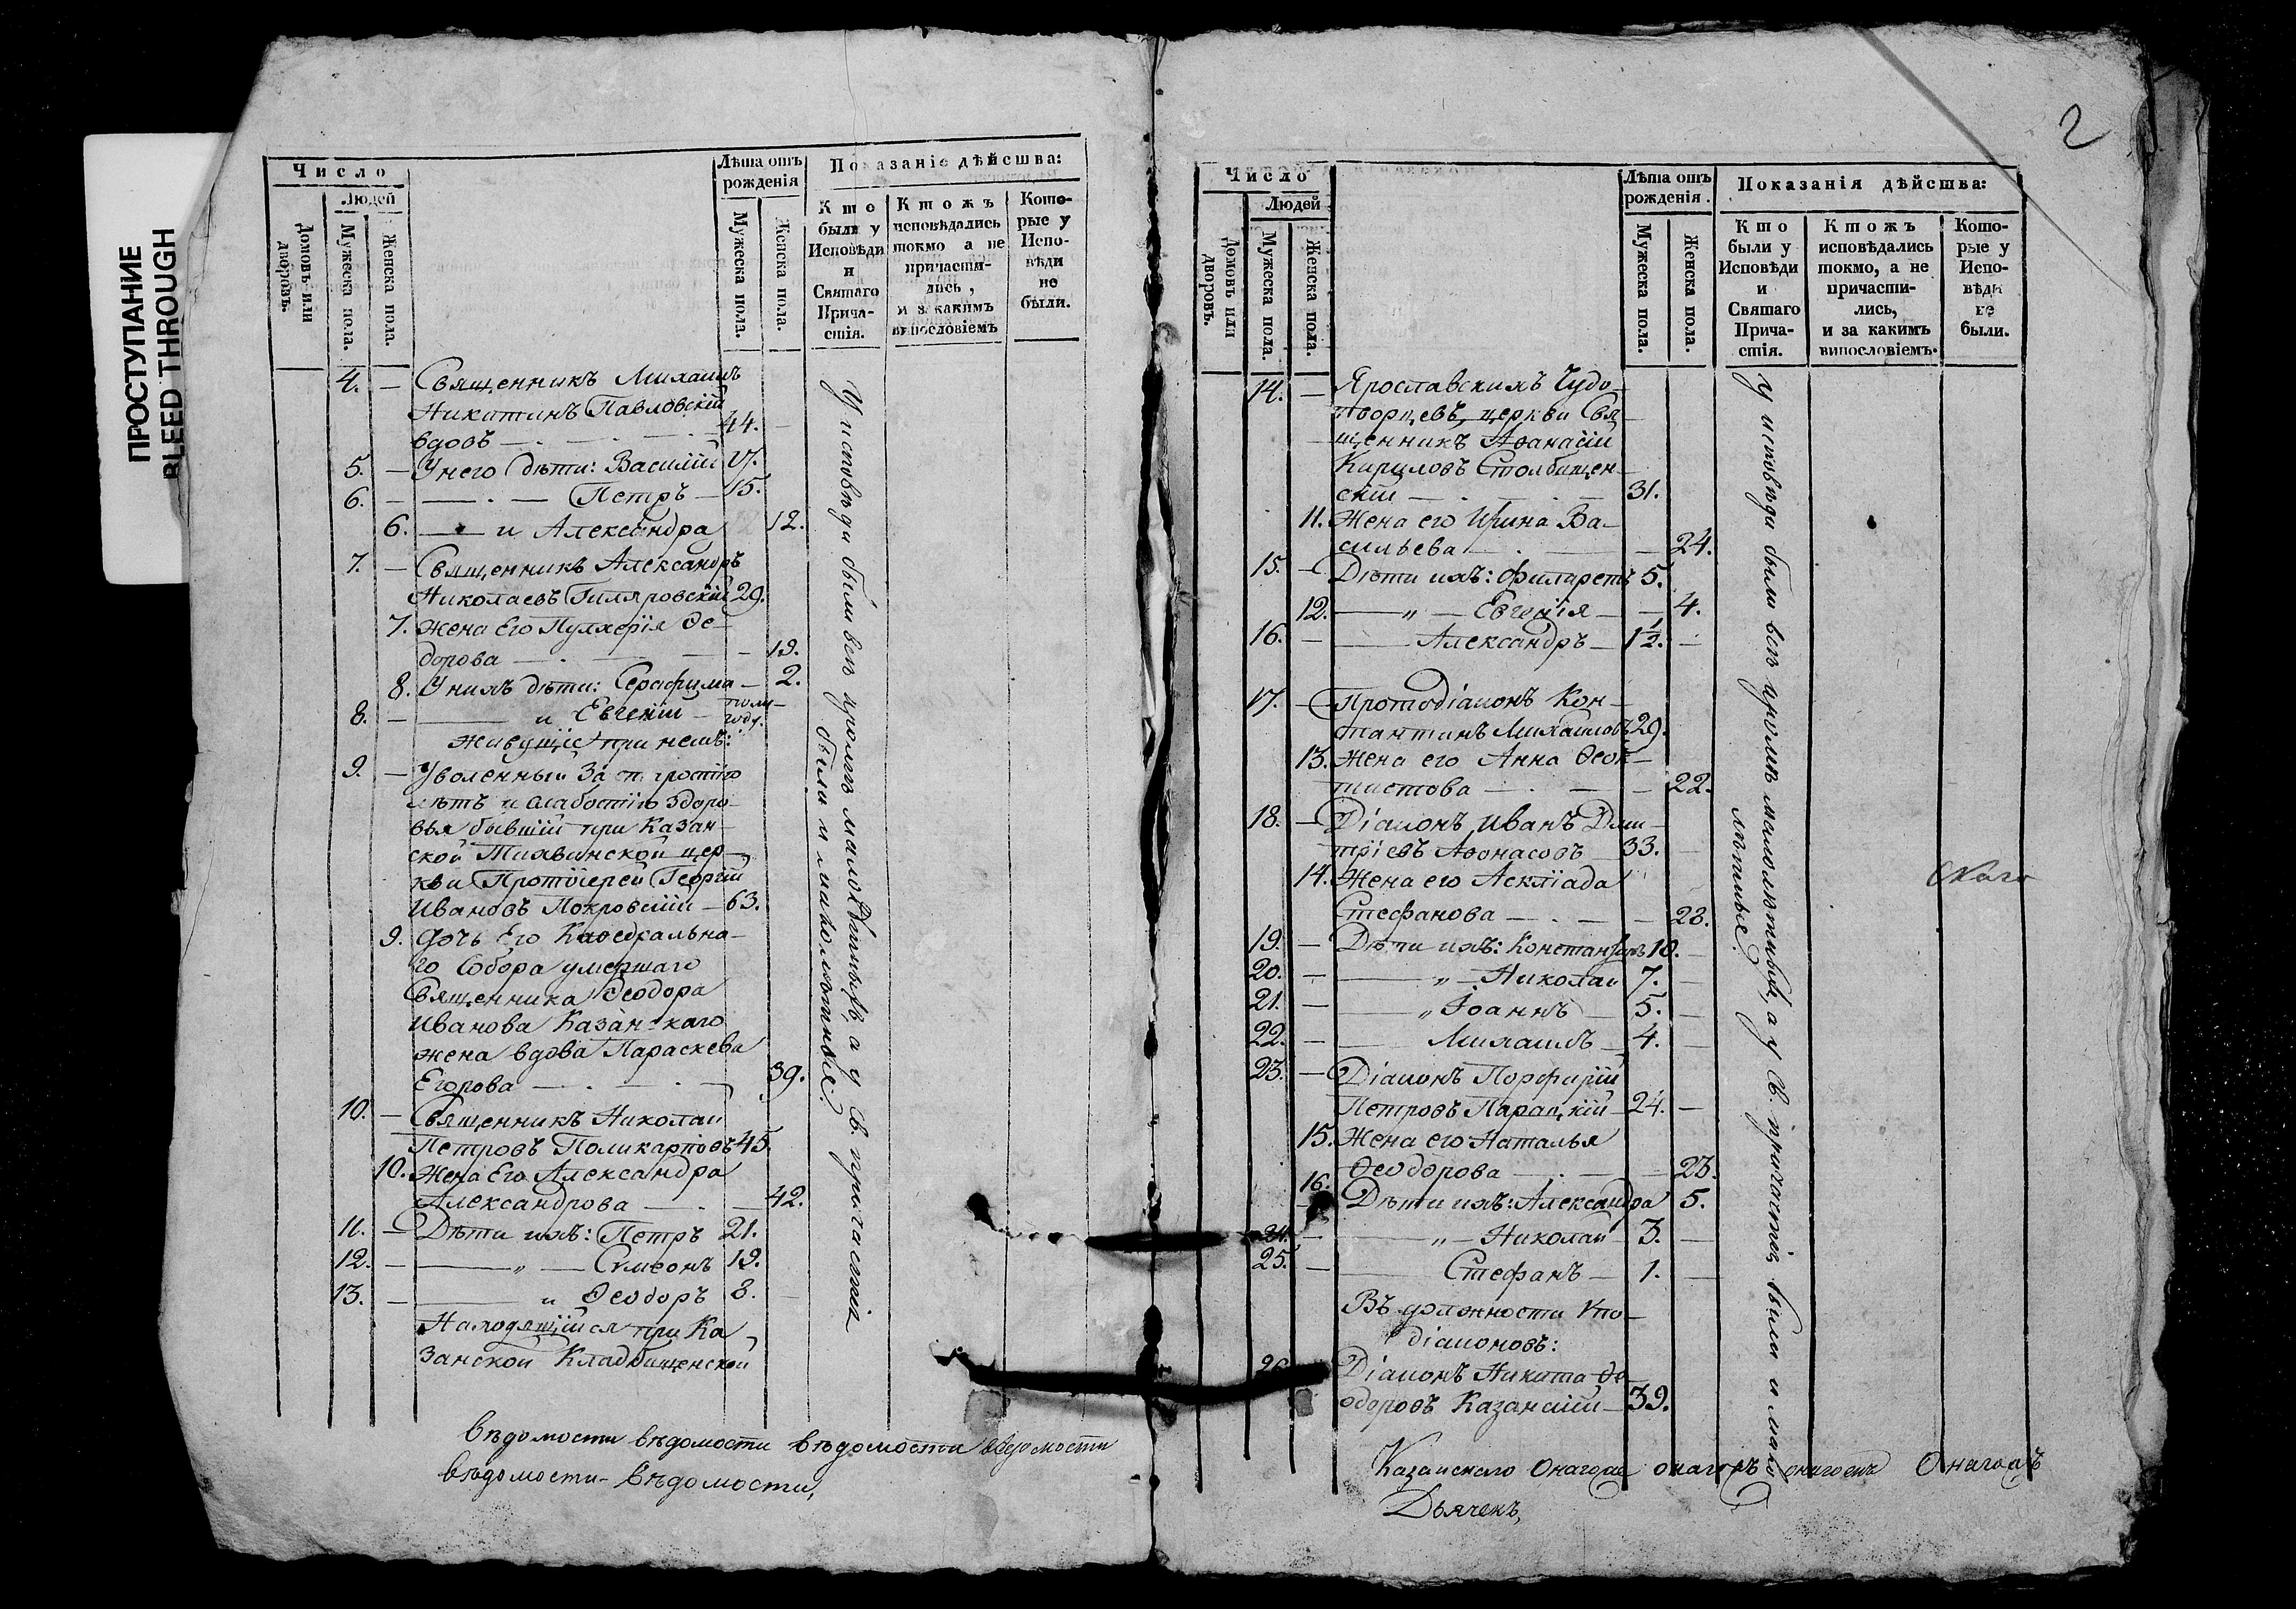 ПРОСТУПАНИЕ
BLEED THROUGH
Число
Людей
Домовъ или дворовъ.
Мужеска пола.
Женска пола.
Лѣта отъ рожденія
Мужеска пола.
Женска пола.
Показаніе дѣйства:
Кто были у Исповѣди и Святаго Причастія.
Ктожъ исповѣдались токмо а не причастились, и за какимъ винословіемъ
Которые у Исповѣди не были.
4. — Священникъ Михаилъ
Никитинъ Павловскій
вдовъ — 44. —
5. — У него дѣти: Василій 17.
6. — — Петръ — 15.
6. — и Александра 12.
7. — Священникъ Александръ
Николаевъ Гиляровскій 29.
7. Жена Его Пулхерія Ѳе-
дорова — 19.
8. У нихъ дѣти: Серафима — 2.
8. — и Евгеній — полгоду.
Живущіе при немъ:
9. — Уволенный За старостію
лѣтъ и слабостію здоро-
вья бывшій при Казан-
ской Тихвинской цер-
кви Протоіерей Георгій
Ивановъ Покровскій — 63.
9. Дочь Его Каѳедрально-
го Собора умершаго
Священника Ѳеодора
Иванова Казанскаго
жена вдова Параскева
Егорова — 39.
10. — Священникъ Николай
Петровъ Поликарповъ 45.
10. Жена Его Александра
Александрова — 42.
11. — Дѣти ихъ: Петръ 21.
12. — „ — Сѵмеонъ 19.
13. — и Ѳеодоръ 8.
Находящійся при Ка-
занской Кладбищенской
У исповѣди были всѣ кромѣ малолѣтныхъ, а у Св. причастія
были и малолѣтныя.
вѣдомости вѣдомости вѣдомости вѣдомости
вѣдомости - вѣдомости,
2
Число
Людей
Домовъ или дворовъ.
Мужеска пола.
Женска пола.
Лѣта отъ рожденія.
Мужеска пола.
Женска пола.
Показанія дѣйства:
Кто были у Исповѣди и Святаго Причастія.
Ктожъ исповѣдались токмо, а не причастились, и за какимъ винословіемъ.
Которые у Исповѣди не были.
14. — Ярославскихъ Чудо-
творцевъ, церкви Свя-
щенникъ Аѳанасій
Кириловъ Столбищен-
скій — 31.
11. Жена его Ирина Ва-
сильева — 24.
15. — Дѣти ихъ: Филаретъ 5.
12. — „ — Евгенія — 4.
16. — Александръ — 1½. —
17. — Протодіаконъ Кон-
стантинъ Михайловъ 29.
13. Жена его Анна Ѳеок-
тистова — 22.
18. — Діаконъ Иванъ Дми-
тріевъ Аѳонасовъ — 33. —
14. Жена его Асклїада
Стефанова — 28.
19. — Дѣти ихъ: Константинъ 10. —
20. — „ — Николай 7. —
21. — „ Іоаннъ — 5. —
22. — Михаилъ — 4. —
23. — Діаконъ Порфирій
Петровъ Парацкій — 24. —
15. Жена его Наталья
Ѳеодорова — 23.
16. Дѣти ихъ: Александра 5.
24. — „ — Николай 3. —
25. — Стефанъ — 1. —
Въ должности Ипо-
діаконовъ:
26. Діаконъ Никита Ѳе-
одоровъ Казанскій — 39.
У исповѣди были всѣ кромѣ малолѣтныхъ, а у Св. причастія были и мало
лѣтные.
скаго
Казанскаго
Дьячекъ,